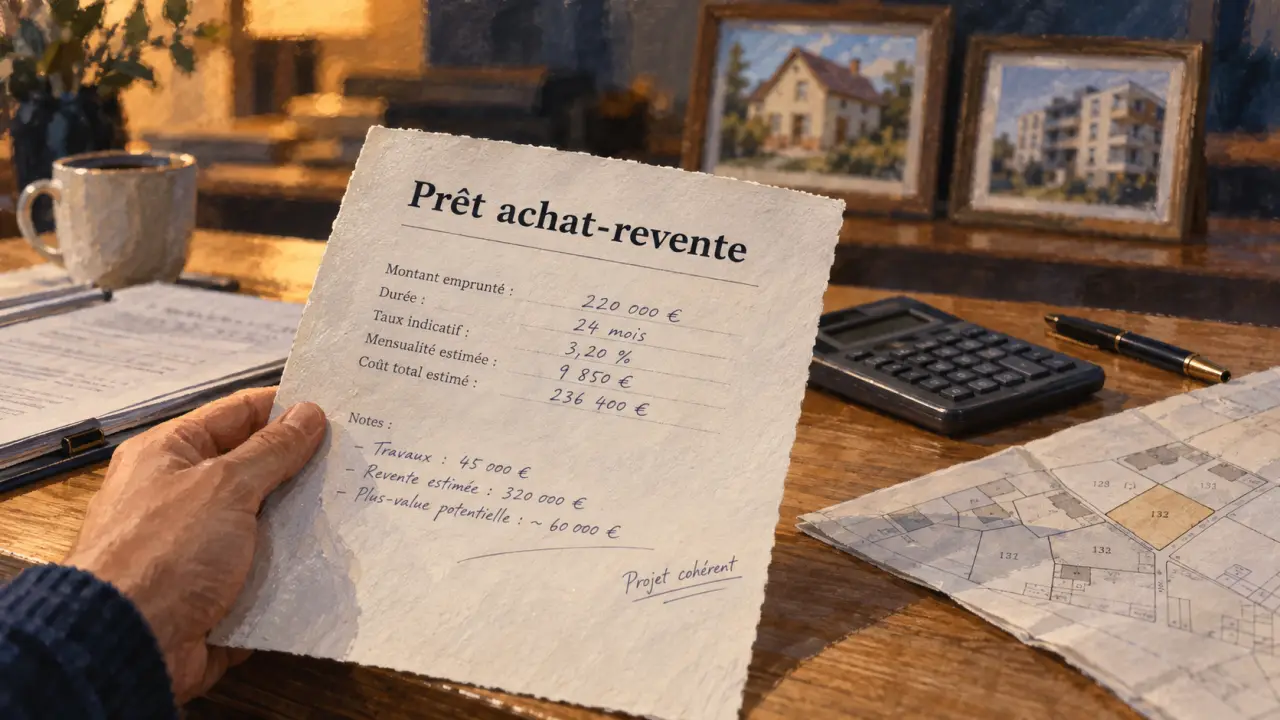 Prêt achat-revente
Montant emprunté : 220 000 €
Durée : 24 mois
Taux indicatif : 3,20 %
Mensualité estimée : 9 850 €
Coût total estimé : 236 400 €
Notes :
- Travaux : 45 000 €
- Revente estimée : 320 000 €
- Plus-value potentielle : ~ 60 000 €
Projet cohérent
132
132
132